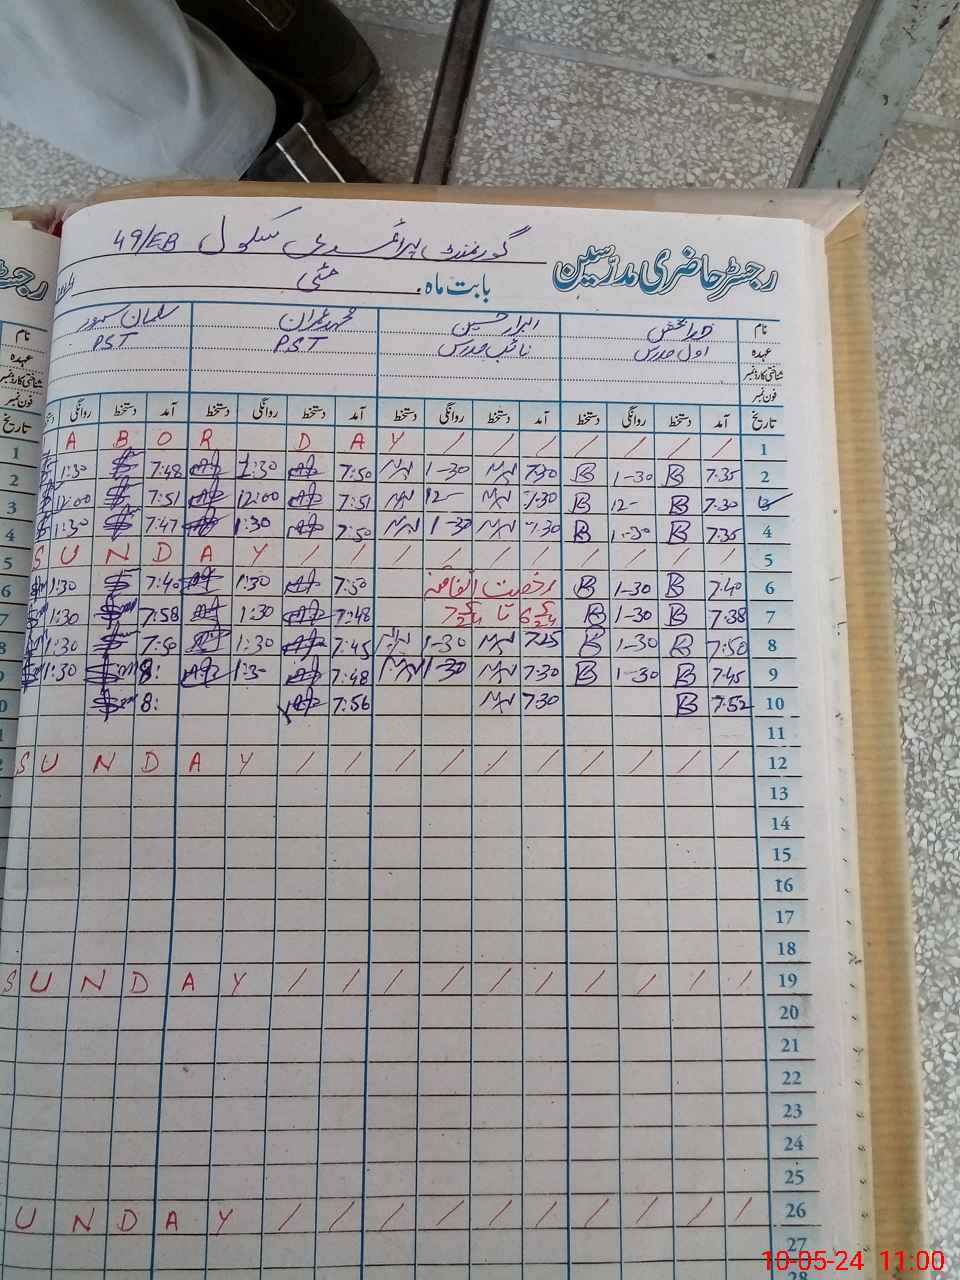 گورنمنٹ پرائمری سکول 49/EB
رجسٹر حاضری مدرسین
بابت ماہ مئی
نام محمد عمران سلمان
عہدہ اول مدرس نائب مدرس PST PST
شناختی کارڈ نمبر
فون نمبر
تاریخ آمد دستخط روانگی دستخط آمد دستخط روانگی دستخط آمد دستخط روانگی دستخط آمد دستخط روانگی
1 A B O R D A Y / / / / / / / /
2 7:35 B 1-30 B 7:30 1-30 7:50 1:30 7:48 1:30
3 7:30 B 12- B 7:30 12- 7:51 12:00 7:51 12:00
4 7:35 B 1-30 B 7:30 1-30 7:50 1:30 7:47 1:30
5 S U N D A Y / / / / / / / / / /
6 7:40 B 1-30 B رخصت اتفاقیہ 7:50 1:30 7:40 1:30
7 7:38 B 1-30 B 6 5/24 تا 7 5/24 7:48 1:30 7:58 1:30
8 7:50 B 1-30 B 7:25 1-30 7:45 1:30 7:50 1:30
9 7:45 B 1-30 B 7:30 1-30 7:48 1:3- 8: 1:30
10 7:52 B 7:30 7:56 8:
11
12 S U N D A Y / / / / / / / / / /
13
14
15
16
17
18
19 S U N D A Y / / / / / / / / / /
20
21
22
23
24
25
26 U N D A Y / / / / / / / / / /
27
28
10-05-24 11:00